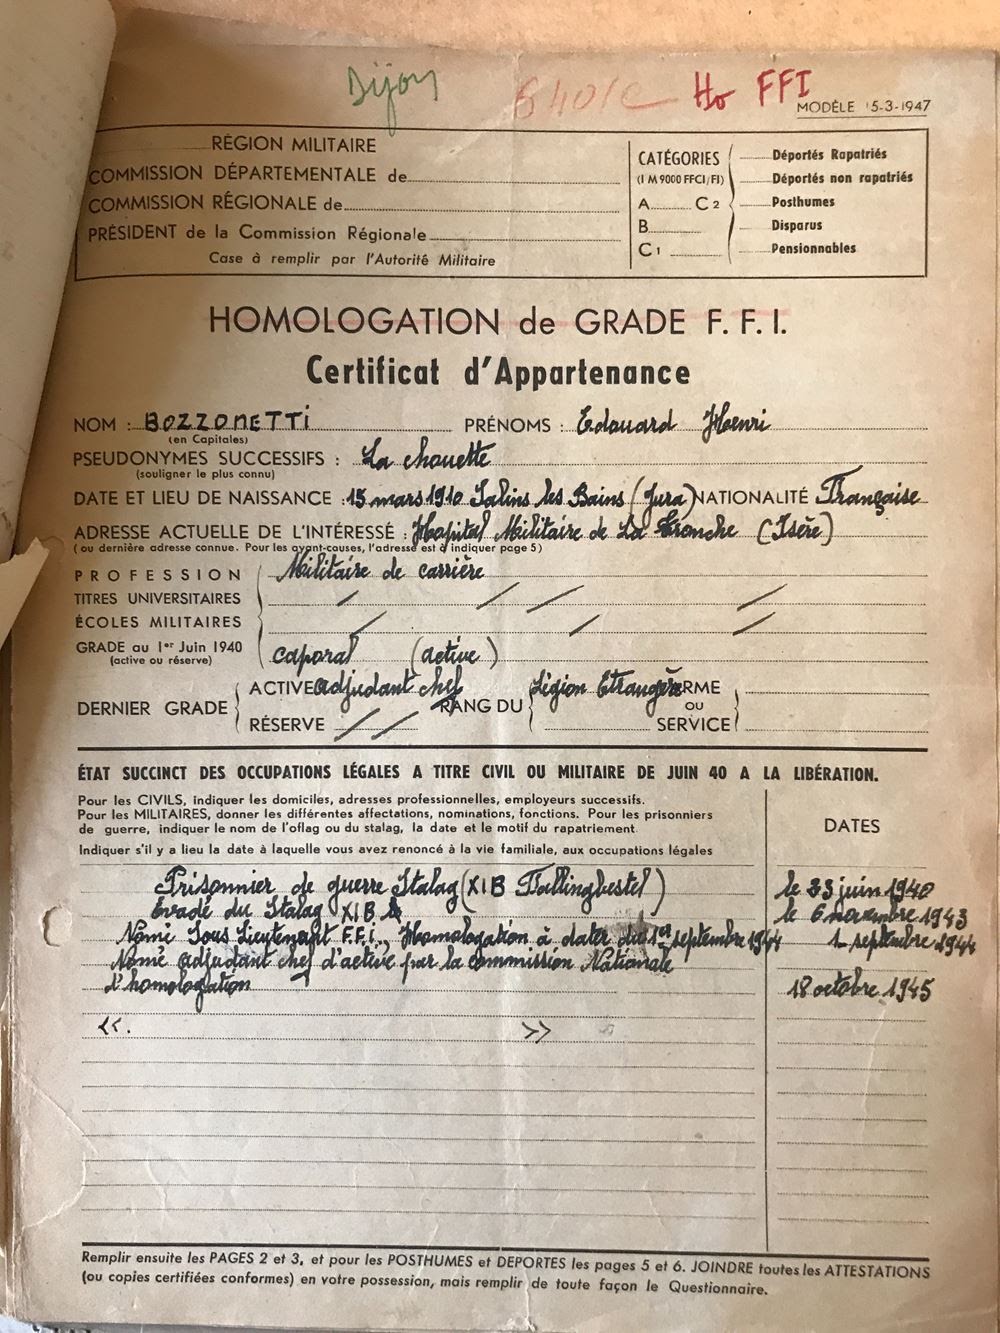 Dijon Ho FFI
MODÈLE 15-3-1947
RÉGION MILITAIRE
COMMISSION DÉPARTEMENTALE de
COMMISSION RÉGIONALE de
PRÉSIDENT de la Commission Régionale
Case à remplir par l'Autorité Militaire
CATÉGORIES
(I M 9000 FFCI/FI)
A C2
B
C1
Déportés Rapatriés
Déportés non rapatriés
Posthumes
Disparus
Pensionnables
HOMOLOGATION de GRADE F. F. I.
Certificat d'Appartenance
NOM : BOZZONETTi PRÉNOMS : Edouard Henri
(en Capitales)
PSEUDONYMES SUCCESSIFS : La chouette
(souligner le plus connu)
DATE ET LIEU DE NAISSANCE : 15 mars 1910 Salins les Bains (Jura) NATIONALITÉ Française
ADRESSE ACTUELLE DE L'INTÉRESSÉ : Hopital Militaire de La Tronche (Isère)
(ou dernière adresse connue. Pour les ayant-causes, l'adresse est à indiquer page 5)
PROFESSION Militaire de carrière
TITRES UNIVERSITAIRES
ÉCOLES MILITAIRES
GRADE au 1er Juin 1940 caporal (active)
(active ou réserve)
DERNIER GRADE
ACTIVE adjudant chef
RÉSERVE
RANG DU Légion Etrangère
ARME
OU
SERVICE
ÉTAT SUCCINCT DES OCCUPATIONS LÉGALES A TITRE CIVIL OU MILITAIRE DE JUIN 40 A LA LIBÉRATION.
Pour les CIVILS, indiquer les domiciles, adresses professionnelles, employeurs successifs.
Pour les MILITAIRES, donner les différentes affectations, nominations, fonctions. Pour les prisonniers
de guerre, indiquer le nom de l'oflag ou du stalag, la date et le motif du rapatriement.
Indiquer s'il y a lieu la date à laquelle vous avez renoncé à la vie familiale, aux occupations légales
DATES
Prisonnier de guerre Stalag (XIB Fallingbestel) le 23 juin 1940
Evadé du Stalag XIB le 6 novembre 1943
Nômé Sous Lieutenant F.F.i., Homologation à dater du 1er septembre 1944 1 septembre 1944
Nômé adjudant chef d'active par la commission Nationale
d'homologation 18 octobre 1945
<<. >>
Remplir ensuite les PAGES 2 et 3, et pour les POSTHUMES et DEPORTES les pages 5 et 6. JOINDRE toutes les ATTESTATIONS
(ou copies certifiées conformes) en votre possession, mais remplir de toute façon le Questionnaire.